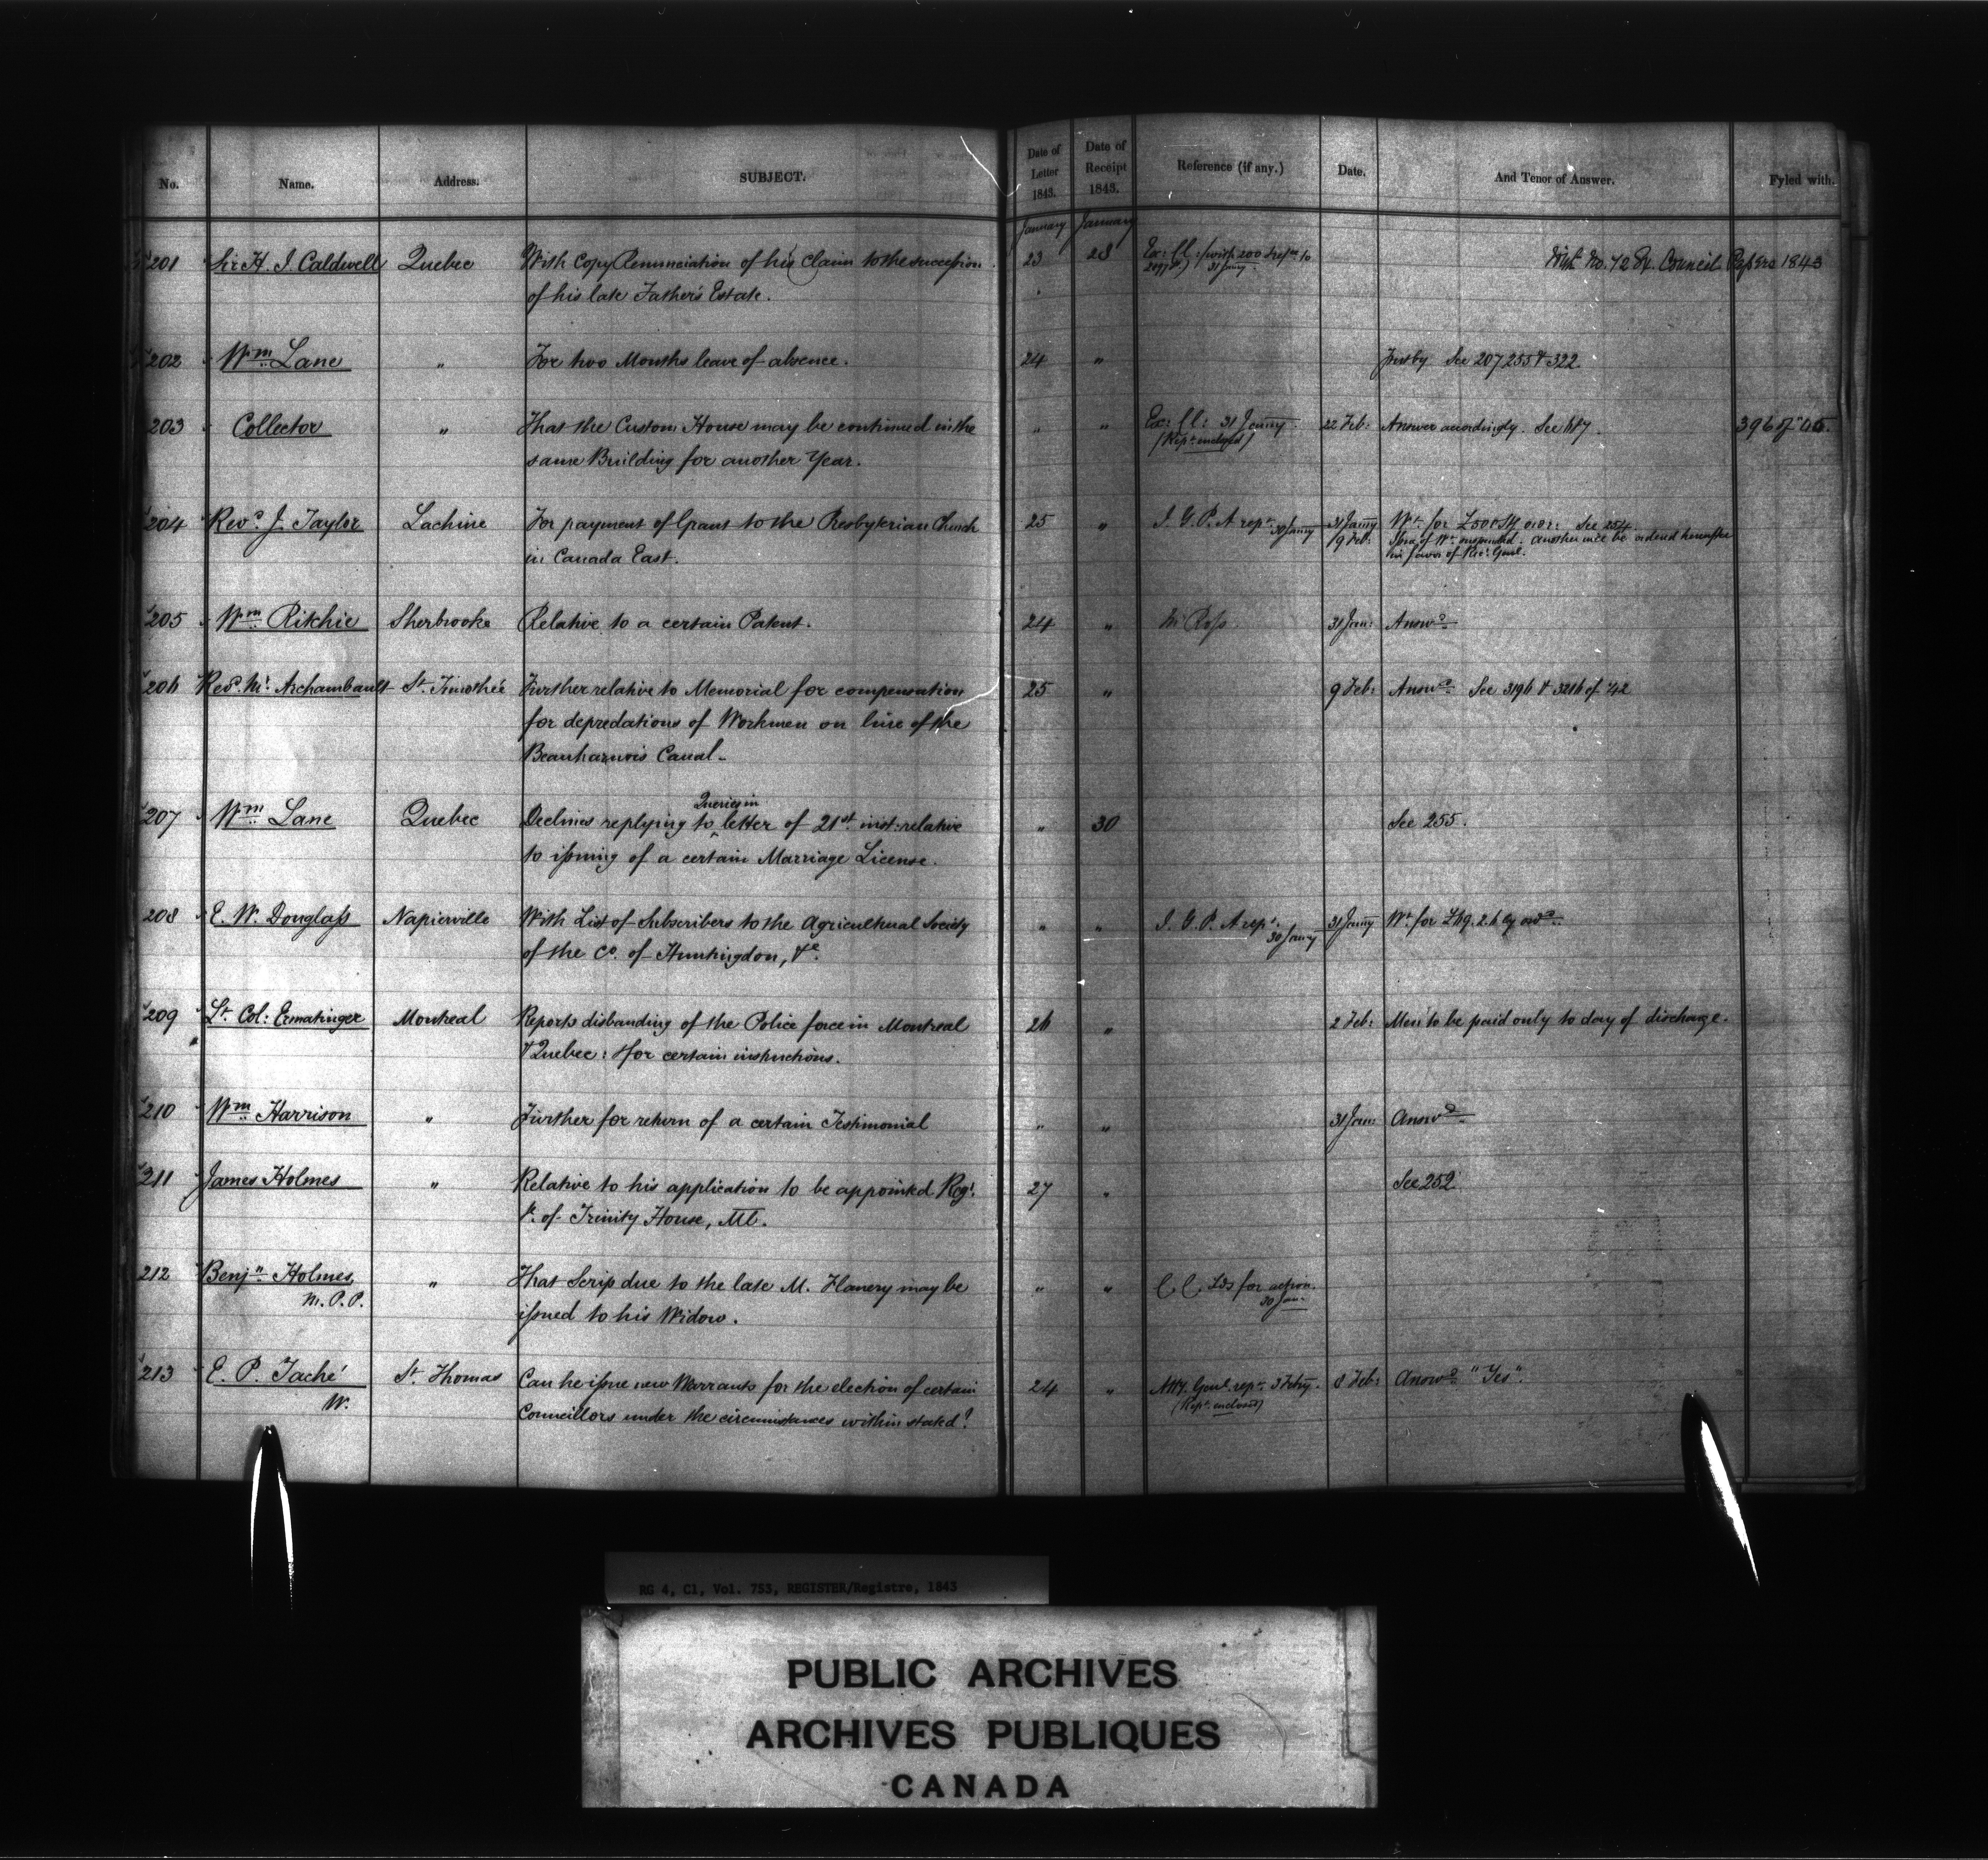 No. Name. Address. SUBJECT. Date of Letter 1843. Date of Receipt 1843. Reference (if any.) Date. And Tenor of Answer. Fyled with.
January January
201 Sir H. J. Caldwell Quebec With Copy Renunciation of his Claim to the succession 23 28 Ex: Cl: (with 200
of his late Father's Estate. 31 Jany No. 72 Ex. Council Papers 1843
202 Wm Lane " For two Months leave of absence. 24 " See 207 255 & 322
203 Collector " That the Custom House may be continued in the " " Ex: Cl: 31 Jany 22 Feb: Answer accordingly. See
same Building for another Year. (Rept. enclosed)
204 Revd. J. Taylor Lachine For payment of Grant to the Presbyterian Church 25 " I. G. P. A rept. 30 Jany 31 Jany Wt. for £500 Stg See 254
in Canada East. 9 Feb: of Wt. suspended. another will be ordered hereafter
in favor of Recr. Genl.
205 Wm Ritchie Sherbrooke Relative to a certain Patent. 24 " Mr Ross 31 Jan: Answd
206 Revd. Mr. Archambault St. Timothée Further relative to Memorial for compensation 25 " 9 Feb: Answd. See 3196 & 3216 of '42
for depredations of Workmen on line of the
Beauharnois Canal.
207 Wm Lane Quebec Declines replying to Queries in letter of 21st. inst: relative " 30 See 255.
to issuing of a certain Marriage License.
208 E. W. Douglass Napierville With List of Subscribers to the Agricultural Society " " I. G. P. A rept. 30 Jany 31 Jany Wt. for £69. 2. 6 Cy ordd.
of the Co. of Huntingdon, &c.
209 Lt. Col: Ermatinger Montreal Reports disbanding of the Police force in Montreal 26 " 2 Feb: Men to be paid only to day of discharge.
& Quebec: & for certain instructions.
210 Wm Harrison " Further for return of a certain Testimonial " " 31 Jan: Answd
211 James Holmes " Relative to his application to be appointed Regr. 27 " See 252
&c. of Trinity House, Ml.
212 Benjn. Holmes, M.P.P. " That Scrip due to the late M. Flanery may be " " C C Lds for action. 30 Jan:
issued to his Widow.
213 E. P. Taché St. Thomas Can he issue new Warrants for the election of certain 24 " Atty. Genl. rept. 3 Feby. 8 Feb: Answd "Yes".
W. Councillors under the circumstances within stated? (Rept. enclosed)
RG 4, C1, Vol. 753, REGISTER/Registre, 1843
PUBLIC ARCHIVES
ARCHIVES PUBLIQUES
CANADA